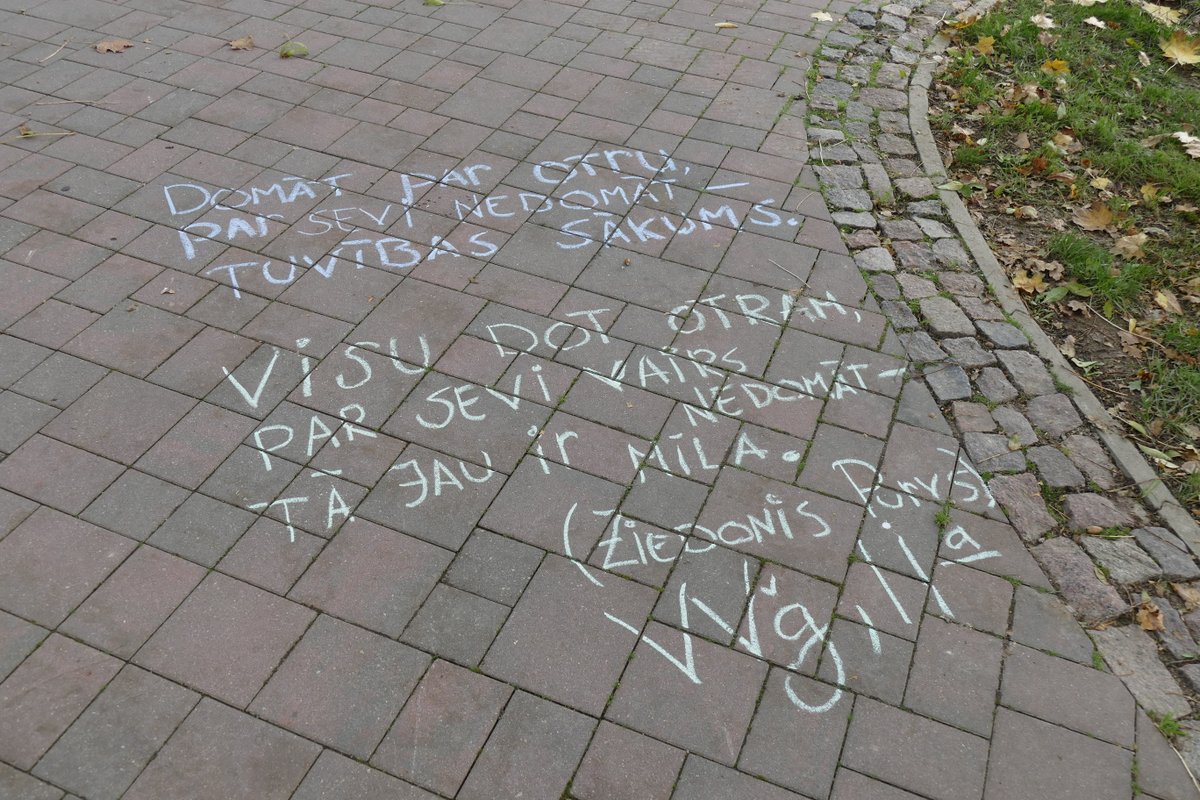 DOMĀT PAR OTRU,
PAR SEVI NEDOMĀT –
TUVĪBAS SĀKUMS.
VISU DOT OTRAM,
PAR SEVI VAIRS NEDOMĀT –
TĀ JAU ir MĪLA.
(ŽIEDONIS PURVS)